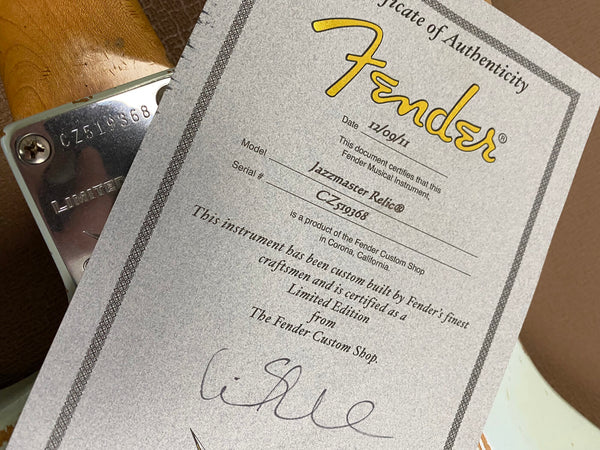 CZ519368
LIMITED
ficate of Authenticity
Fender®
Date 12/09/11
This document certifies that this
Fender Musical Instrument,
Model Jazzmaster Relic®
Serial # CZ519368
is a product of the Fender Custom Shop
in Corona, California.
This instrument has been custom built by Fender's finest
craftsmen and is certified as a
Limited Edition
from
The Fender Custom Shop.